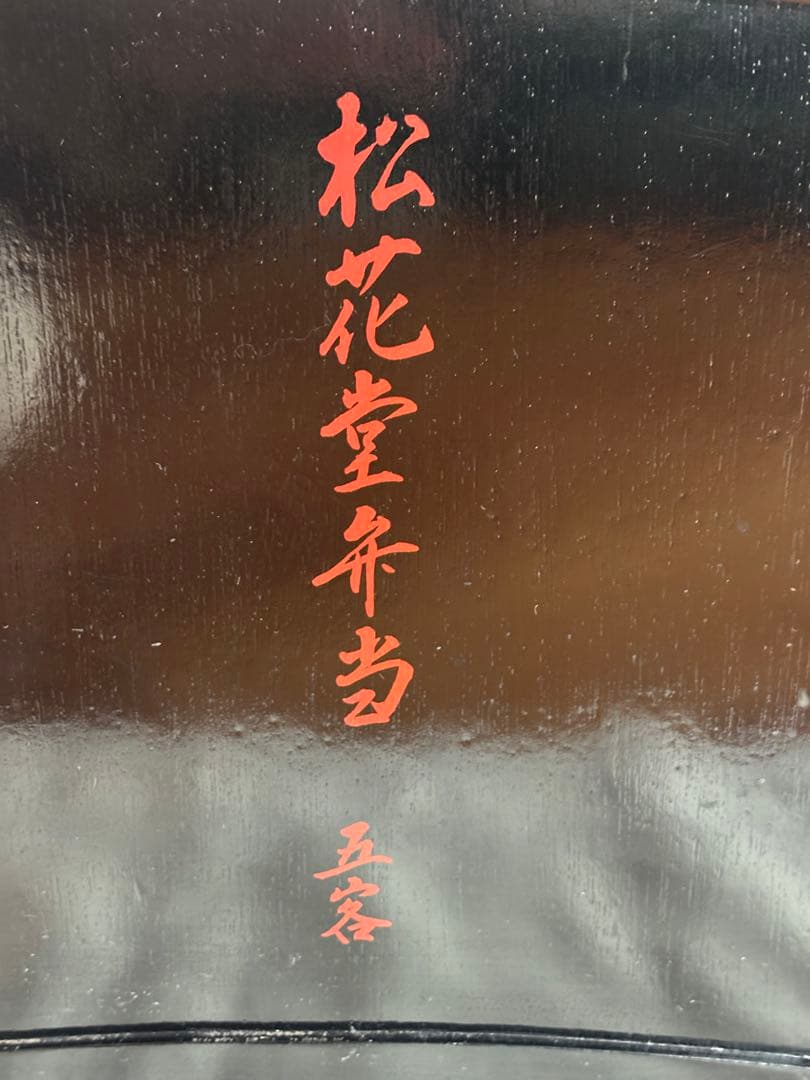 松花堂弁当
五客